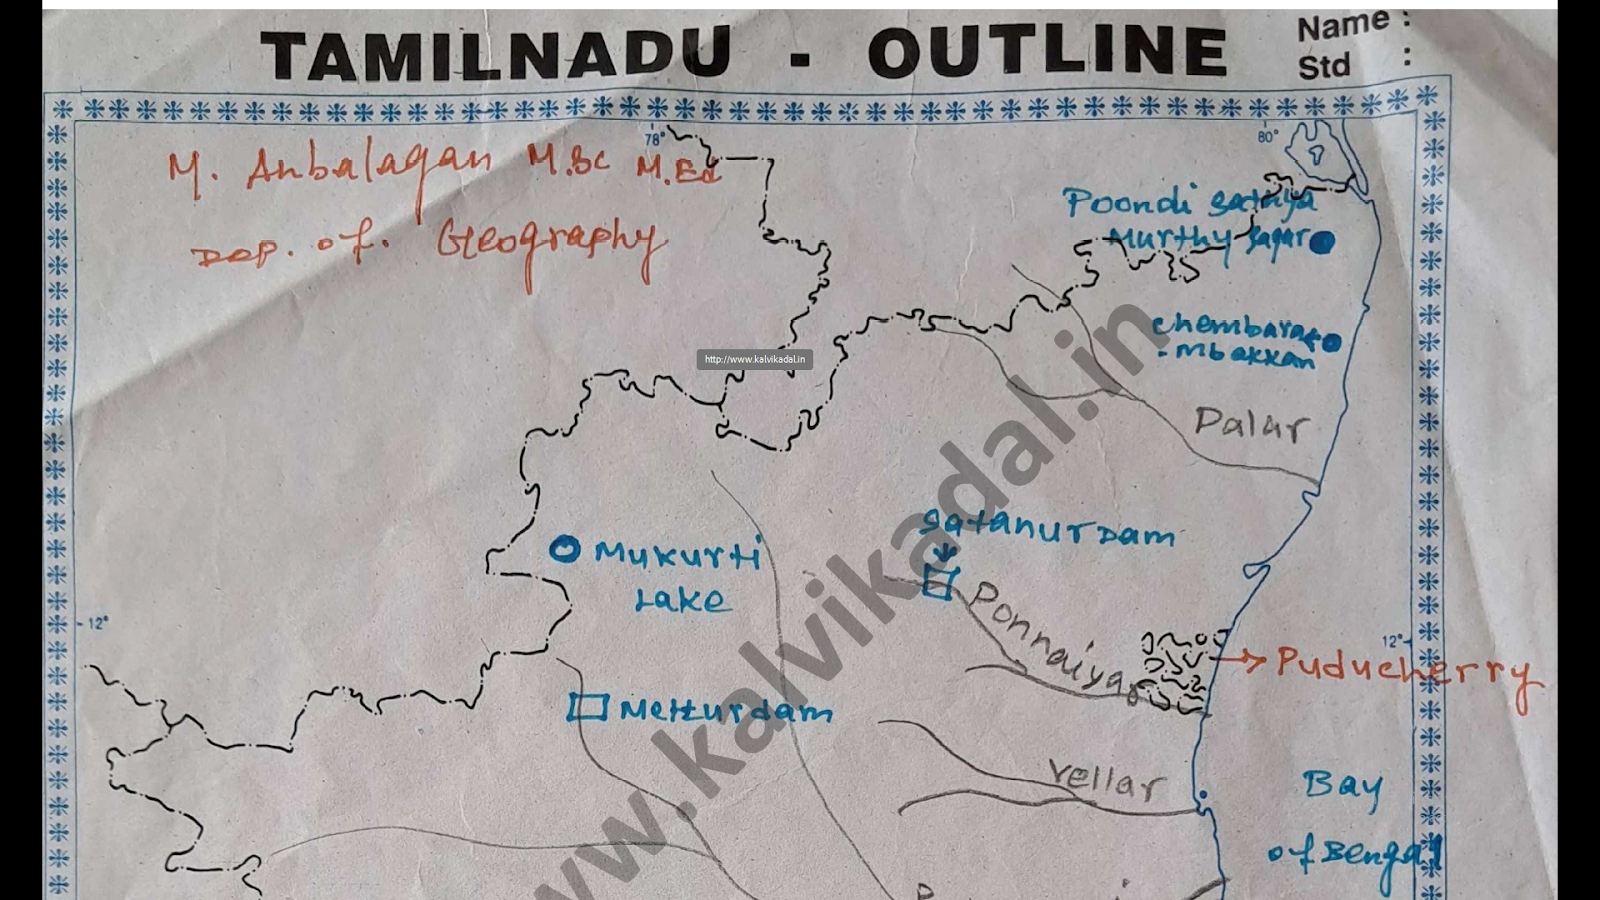 TAMILNADU - OUTLINE
Name :
Std :
78°
80°
M. Anbalagan M.Sc M.Ed
Dep. of. Geography
Poondi Sathya
Murthy Sagar
http://www.kalvikadal.in
chembara
-mbakkan
Palar
Satanurdam
Mukurti
Lake
Ponnaiyar
12°
12°
Puducherry
Metturdam
Vellar
Bay
of Bengal
www.kalvikadal.in